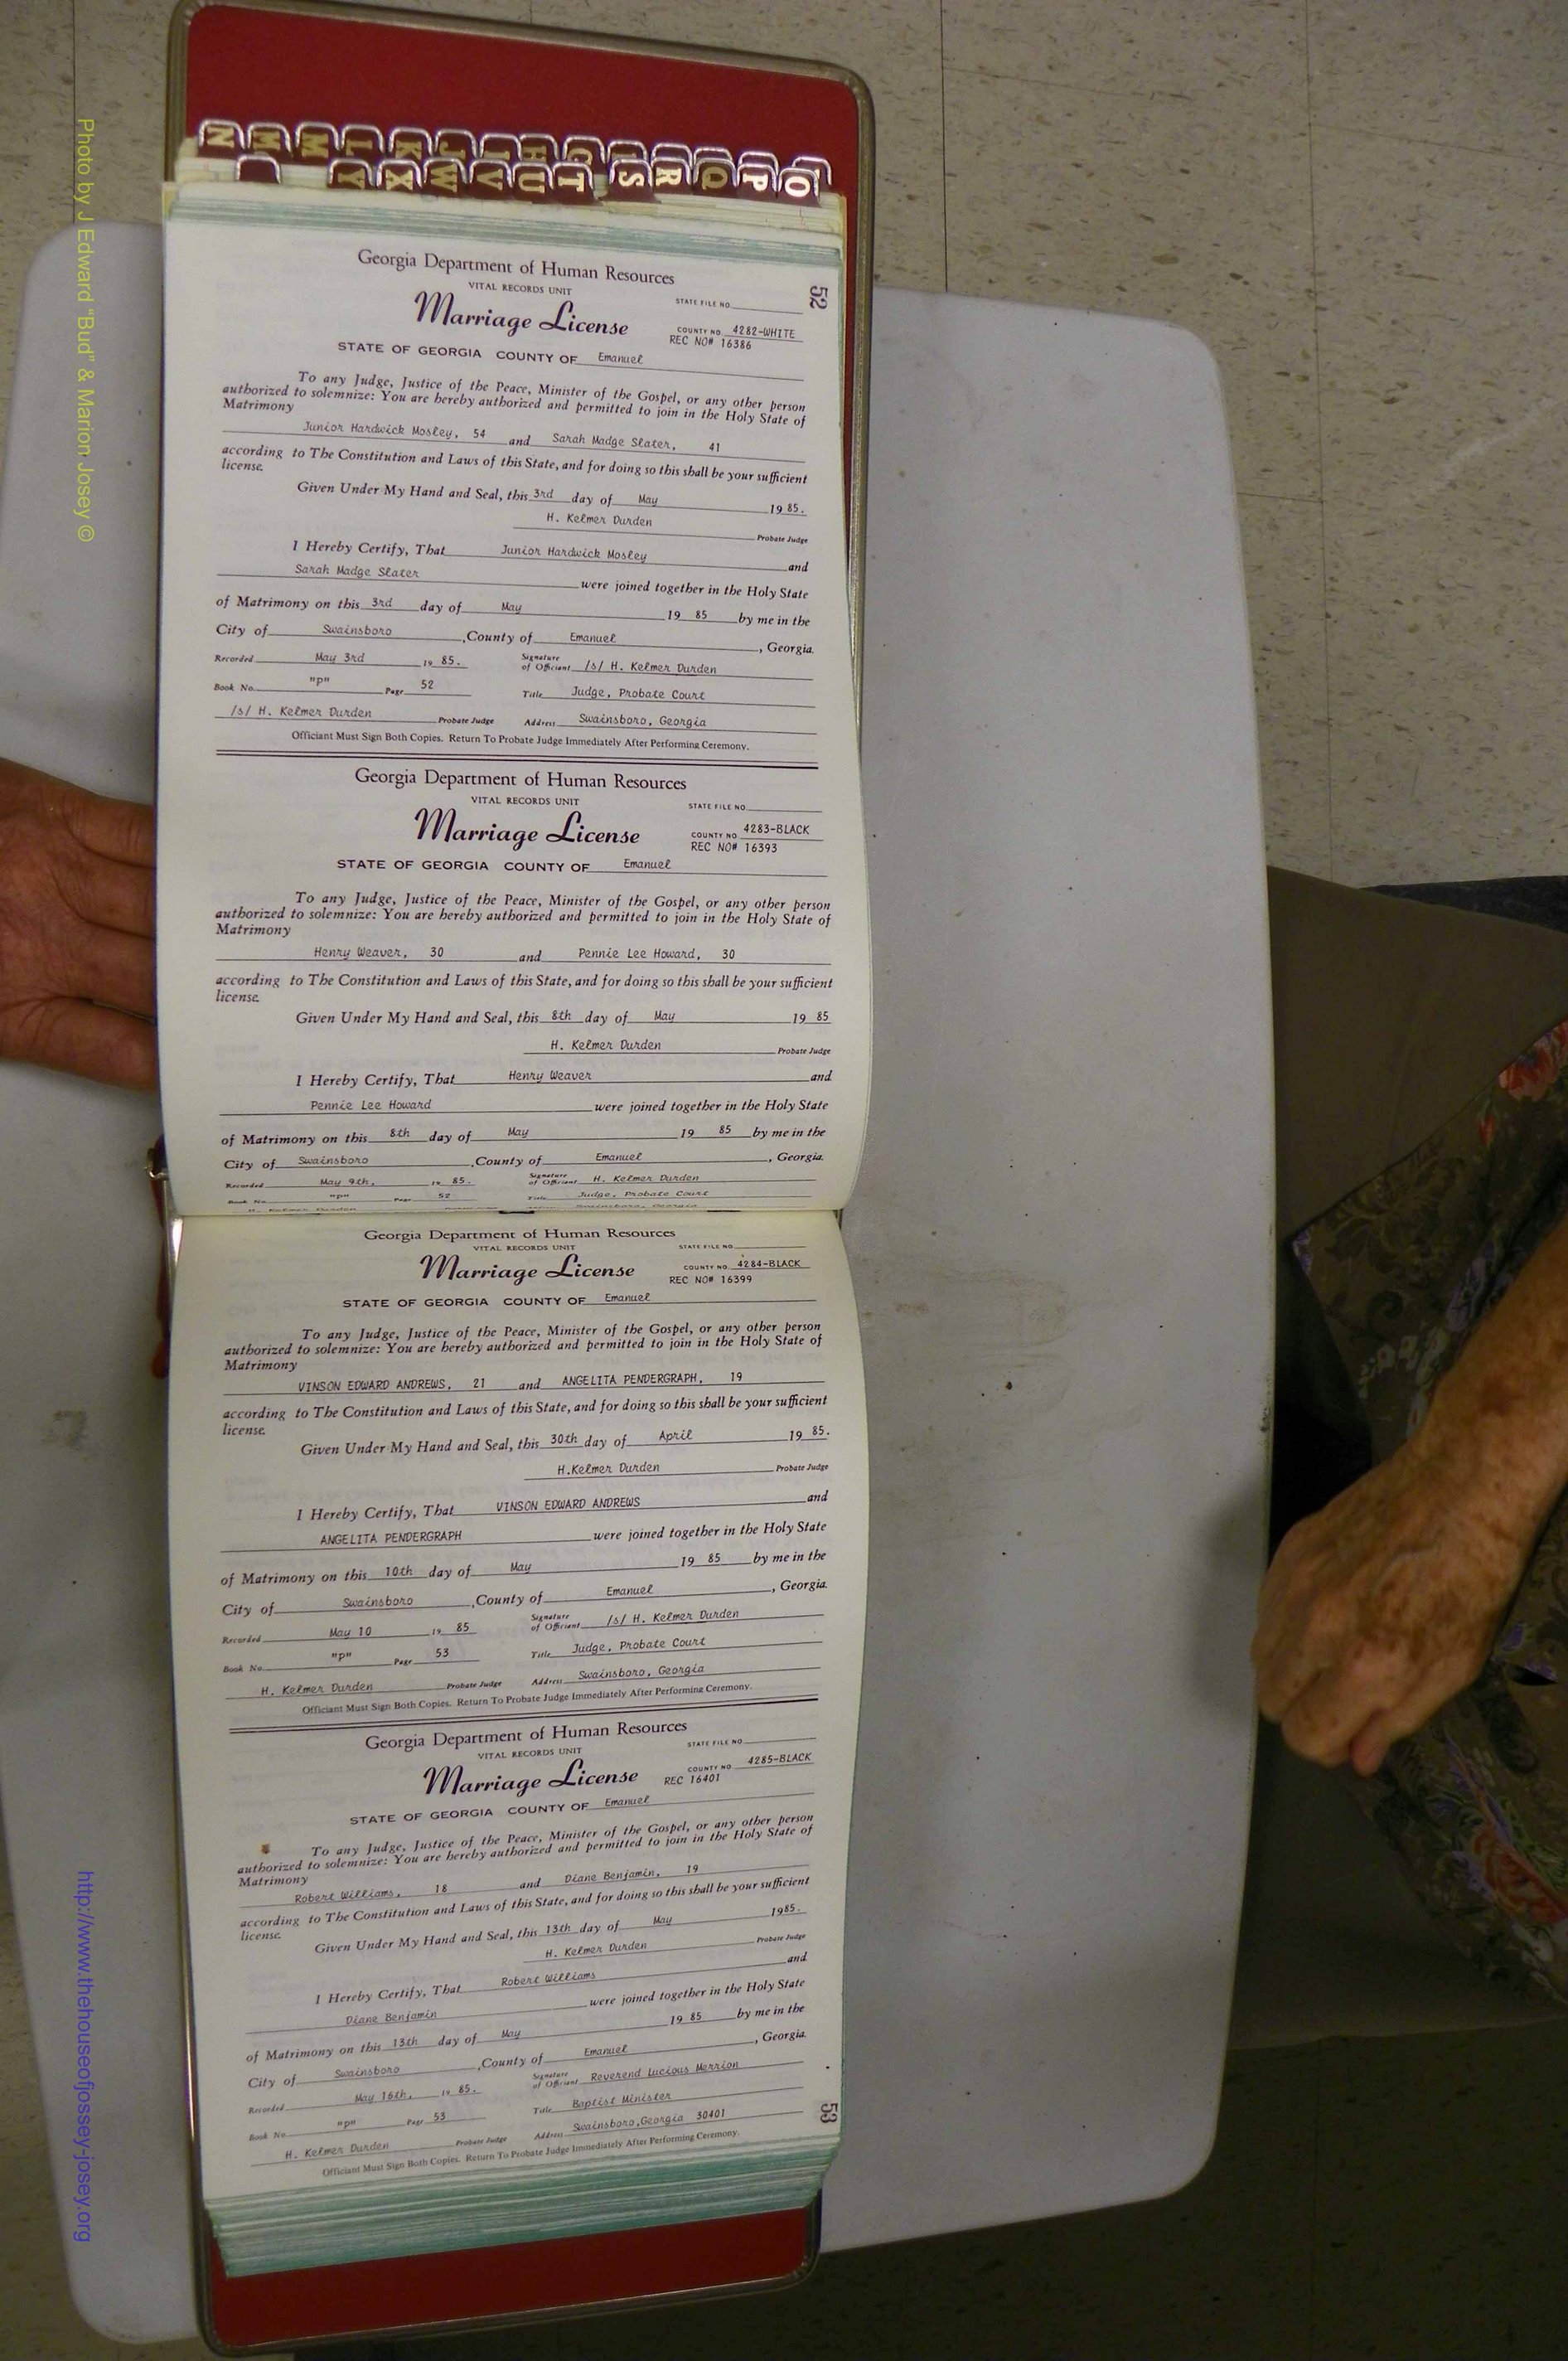 N M M L K J I H G R Q
Y X W V U T S R Q P O
52
Georgia Department of Human Resources
VITAL RECORDS UNIT
STATE FILE NO.
Marriage License
COUNTY NO. 4282-WHITE
REC NO# 16386
STATE OF GEORGIA COUNTY OF Emanuel
To any Judge, Justice of the Peace, Minister of the Gospel, or any other person
authorized to solemnize: You are hereby authorized and permitted to join in the Holy State of
Matrimony
Junior Hardwick Mosley, 54 and Sarah Madge Slater, 41
according to The Constitution and Laws of this State, and for doing so this shall be your sufficient
license.
Given Under My Hand and Seal, this 3rd day of May 19 85.
H. Kelmer Durden
Probate Judge
I Hereby Certify, That Junior Hardwick Mosley and
Sarah Madge Slater were joined together in the Holy State
of Matrimony on this 3rd day of May 19 85 by me in the
City of Swainsboro, County of Emanuel, Georgia.
Recorded May 3rd 19 85. Signature of Officiant /s/ H. Kelmer Durden
Book No. "p" Page 52 Title Judge, Probate Court
/s/ H. Kelmer Durden Probate Judge Address Swainsboro, Georgia
Officiant Must Sign Both Copies. Return To Probate Judge Immediately After Performing Ceremony.
Georgia Department of Human Resources
VITAL RECORDS UNIT
STATE FILE NO.
Marriage License
COUNTY NO 4283-BLACK
REC NO# 16393
STATE OF GEORGIA COUNTY OF Emanuel
To any Judge, Justice of the Peace, Minister of the Gospel, or any other person
authorized to solemnize: You are hereby authorized and permitted to join in the Holy State of
Matrimony
Henry Weaver, 30 and Pennie Lee Howard, 30
according to The Constitution and Laws of this State, and for doing so this shall be your sufficient
license.
Given Under My Hand and Seal, this 8th day of May 19 85
H. Kelmer Durden Probate Judge
I Hereby Certify, That Henry Weaver and
Pennie Lee Howard were joined together in the Holy State
of Matrimony on this 8th day of May 19 85 by me in the
City of Swainsboro, County of Emanuel, Georgia.
Recorded May 9th, 19 85. Signature of Officiant H. Kelmer Durden
Book No "p" Page 52 Title Judge, Probate Court
H. Kelmer Durden Swainsboro, Georgia
Georgia Department of Human Resources
VITAL RECORDS UNIT
STATE FILE NO.
Marriage License
COUNTY NO. 4284-BLACK
REC NO# 16399
STATE OF GEORGIA COUNTY OF Emanuel
To any Judge, Justice of the Peace, Minister of the Gospel, or any other person
authorized to solemnize: You are hereby authorized and permitted to join in the Holy State of
Matrimony
VINSON EDWARD ANDREWS, 21 and ANGELITA PENDERGRAPH, 19
according to The Constitution and Laws of this State, and for doing so this shall be your sufficient
license.
Given Under My Hand and Seal, this 30th day of April 19 85.
H.Kelmer Durden Probate Judge
I Hereby Certify, That VINSON EDWARD ANDREWS and
ANGELITA PENDERGRAPH were joined together in the Holy State
of Matrimony on this 10th day of May 19 85 by me in the
City of Swainsboro, County of Emanuel, Georgia.
Recorded May 10 19 85 Signature of Officiant /s/ H. Kelmer Durden
Book No. "p" Page 53 Title Judge, Probate Court
H. Kelmer Durden Probate Judge Address Swainsboro, Georgia
Officiant Must Sign Both Copies. Return To Probate Judge Immediately After Performing Ceremony.
Georgia Department of Human Resources
VITAL RECORDS UNIT
STATE FILE NO.
Marriage License
COUNTY NO. 4285-BLACK
REC 16401
STATE OF GEORGIA COUNTY OF Emanuel
To any Judge, Justice of the Peace, Minister of the Gospel, or any other person
authorized to solemnize: You are hereby authorized and permitted to join in the Holy State of
Matrimony
Robert Williams, 18 and Diane Benjamin, 19
according to The Constitution and Laws of this State, and for doing so this shall be your sufficient
license.
Given Under My Hand and Seal, this 13th day of May 1985.
H. Kelmer Durden Probate Judge
I Hereby Certify, That Robert Williams and
Diane Benjamin were joined together in the Holy State
of Matrimony on this 13th day of May 19 85 by me in the
City of Swainsboro, County of Emanuel, Georgia.
Recorded May 16th, 19 85. Signature of Officiant Reverend Lucious Merrion
Book No. "p" Page 53 Title Baptist Minister
H. Kelmer Durden Probate Judge Address Swainsboro,Georgia 30401
Officiant Must Sign Both Copies. Return To Probate Judge Immediately After Performing Ceremony.
53
Photo by J Edward "Bud" & Marion Josey ©
http://www.thehouseofjossey-josey.org